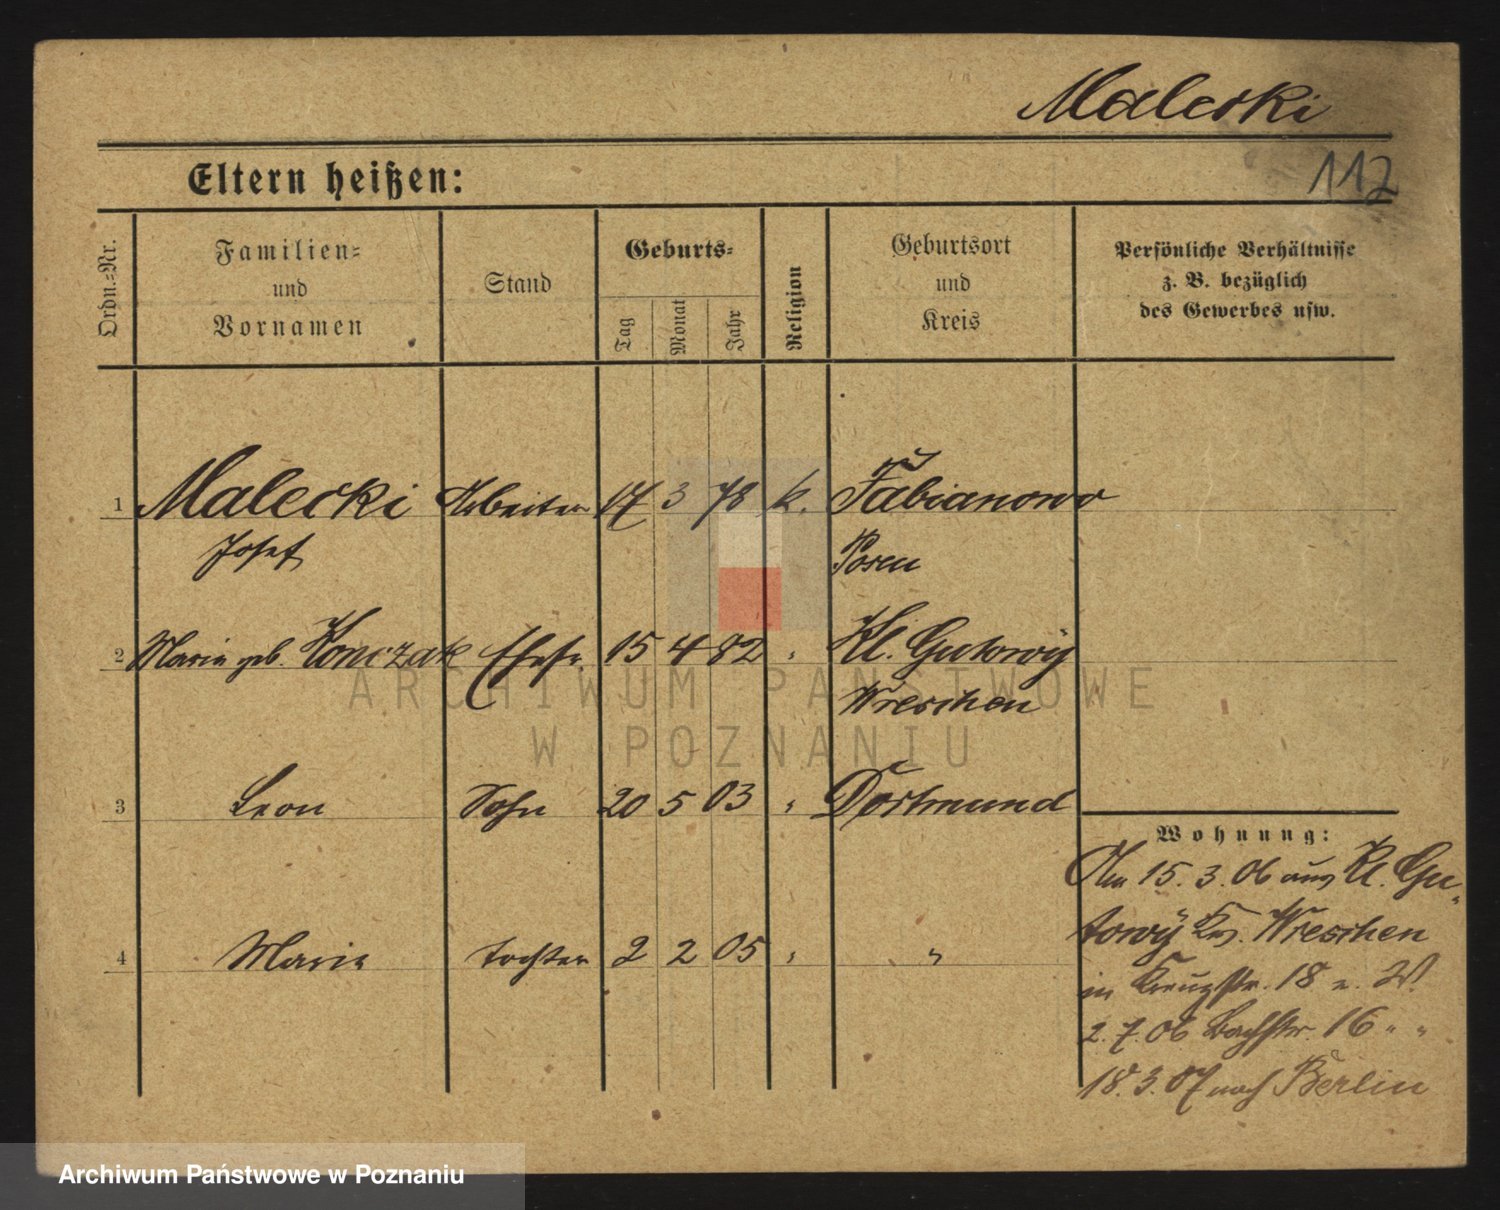 Malecki
112
Eltern heißen:
Ordn.-Nr.
Familien-
und
Vornamen
Stand
Geburts-
Tag
Monat
Jahr
Religion
Geburtsort
und
Kreis
Persönliche Verhältnisse
z. B. bezüglich
des Gewerbes usw.
1 Malecki Arbeiter 17 3 78 k. Fabianowo
Josef Posen
2 Maria geb. Konczak Ehefr. 15 4 82 " Kl. Gutowy
Wreschen
3 Leon Sohn 20 5 03 " Dortmund
4 Marie Tochter 2 2 05 " "
Wohnung:
Am 15. 3. 06 aus Kl. Gu-
towy Kr. Wreschen
in Kreuzstr. 18 e. W.
2. 7. 06 Bachstr. 16 " "
18. 3. 07 nach Berlin
ARCHIWUM PAŃSTWOWE
W POZNANIU
Archiwum Państwowe w Poznaniu